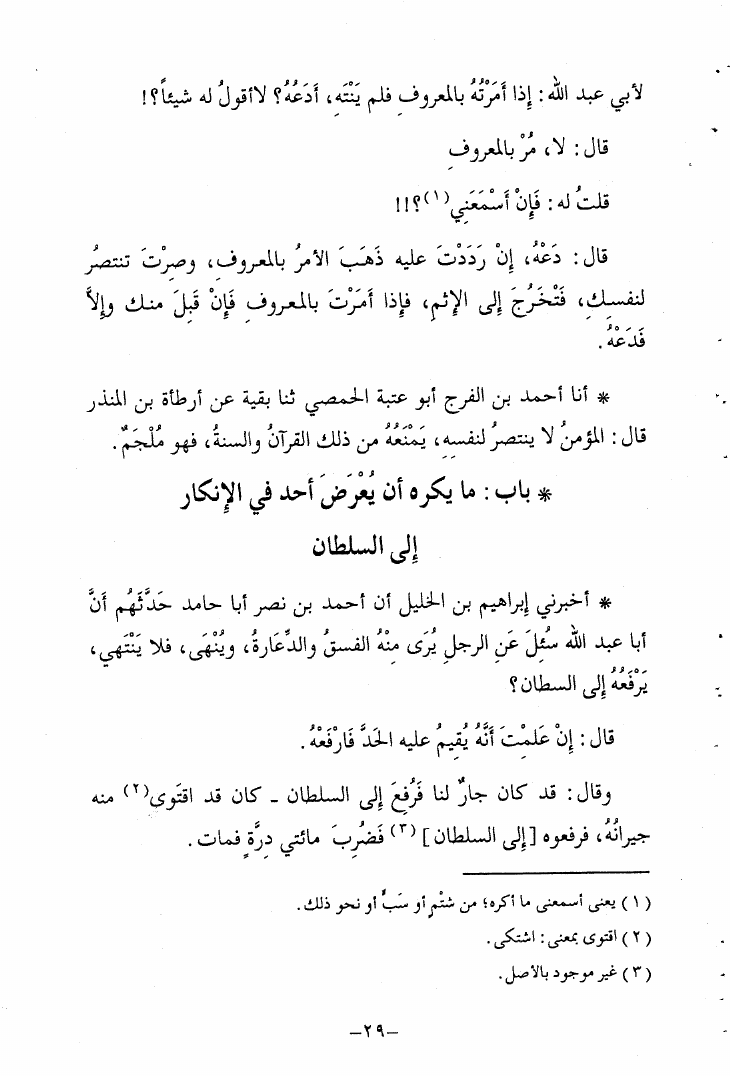 لأبي عبد الله: إذا أَمَرْتُهُ بالمعروفِ فلم يَنْتَهِ، أَدَعُهُ؟ لاأقولُ له شيئاً؟!
قال: لا، مُرْ بالمعروفِ
قلتُ له: فَإِنْ أَسْمَعَنِي(١)؟!!
قال: دَعْهُ، إِنْ رَدَدْتَ عليه ذَهَبَ الأمرُ بالمعروفِ، وصِرْتَ تنتصرُ
لنفسِكِ، فَتَخْرُجَ إلى الإثمِ، فإذا أَمَرْتَ بالمعروفِ فَإِنْ قَبِلَ منك وإِلاَّ
فَدَعْهُ.
* أنا أحمد بن الفرج أبو عتبة الحمصي ثنا بقية عن أرطأة بن المنذر
قال: المؤمنُ لا ينتصرُ لنفسِهِ، يَمْنَعُهُ من ذلك القرآنُ والسنةُ، فهو مُلْجَمٌ.
* باب: ما يكره أن يُعْرَضَ أحد في الإنكار
إلى السلطان
* أخبرني إبراهيم بن الخليل أن أحمد بن نصر أبا حامد حَدَّثَهُم أَنَّ
أبا عبد الله سُئِلَ عَنِ الرجلِ يُرَى مِنْهُ الفسقُ والدِّعَارةُ، ويُنْهَى، فلا يَنْتَهِي،
يَرْفَعُهُ إلى السطان؟
قال: إِنْ عَلِمْتَ أَنَّهُ يُقِيمُ عليه الحَدَّ فَارْفَعْهُ.
وقال: قد كان جارٌ لنا فَرُفِعَ إلى السلطان ـ كان قد اقتَوى(٢) منه
جيرانُهُ، فرفعوه [إلى السلطان](٣) فَضُرِبَ مائتي دِرَّةٍ فمات.
(١) يعنى أسمعنى ما أكره؛ من شتْمٍ أو سَبٍّ أو نحو ذلك.
(٢) اقتوى بمعنى: اشتكى.
(٣) غير موجود بالأصل.
—٢٩—